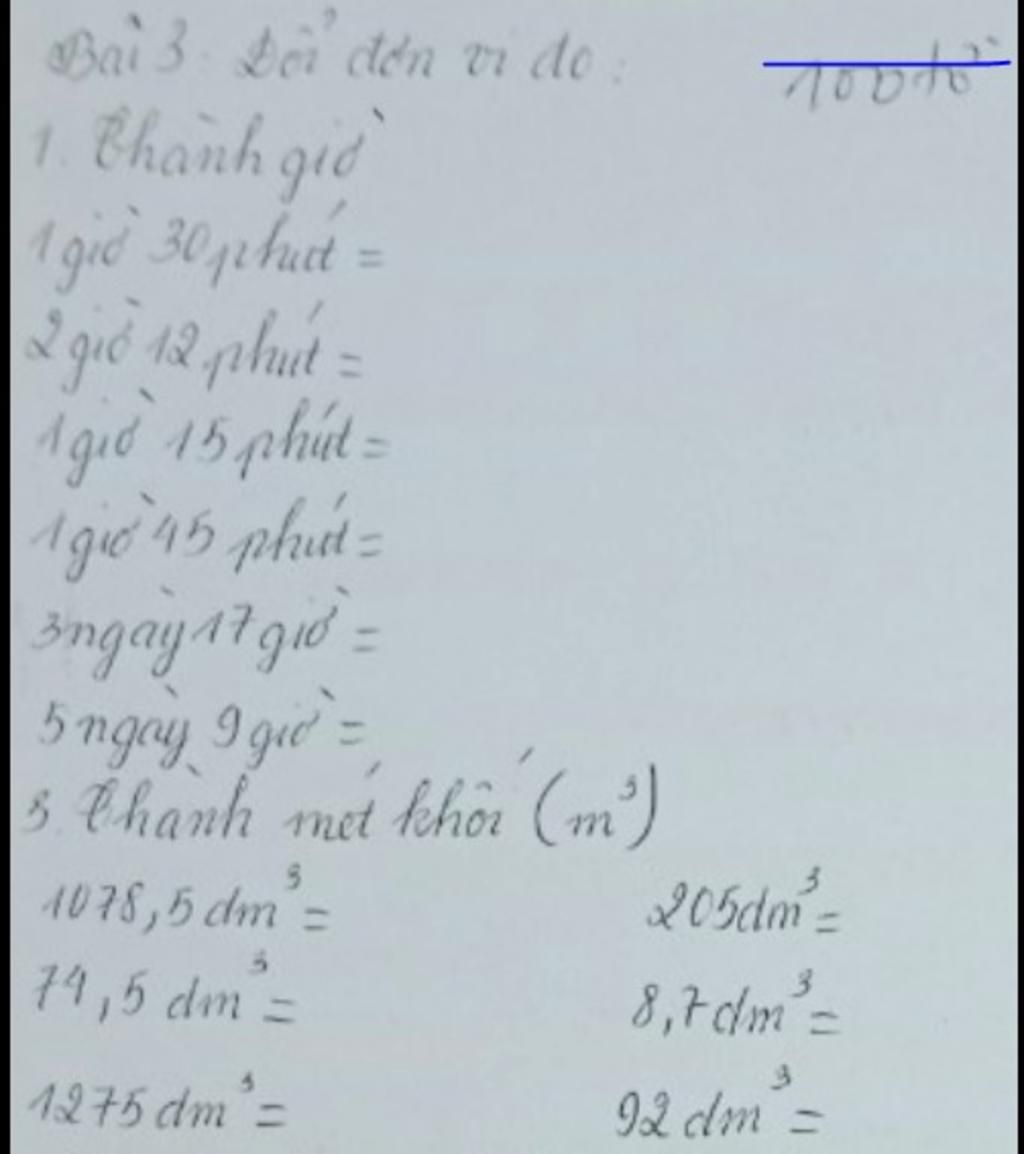 Bài 3: Đổi đơn vị đo:
1. Thành giờ
1 giờ 30 phút =
2 giờ 12 phút =
1 giờ 15 phút =
1 giờ 45 phút =
3 ngày 17 giờ =
5 ngày 9 giờ =
3. Thành mét khối (m³)
1078,5 dm³ = 205dm³ =
74,5 dm³ = 8,7dm³ =
1275 dm³ = 92 dm³ =